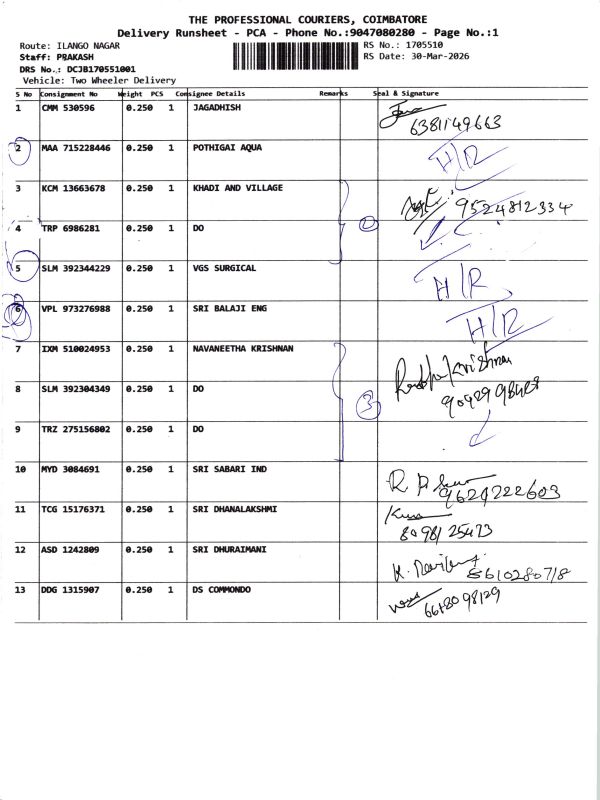 THE PROFESSIONAL COURIERS, COIMBATORE
Delivery Runsheet - PCA - Phone No.:9047080280 - Page No.:1
Route: ILANGO NAGAR RS No.: 1705510
Staff: PRAKASH RS Date: 30-Mar-2026
DRS No.: DCJB170551001
Vehicle: Two Wheeler Delivery
S No Consignment No Weight PCS Consignee Details Remarks Seal & Signature
1 CMM 530596 0.250 1 JAGADHISH
6381149663
2 MAA 715228446 0.250 1 POTHIGAI AQUA H/R
3 KCM 13663678 0.250 1 KHADI AND VILLAGE 9524812334
4 TRP 6986281 0.250 1 DO
5 SLM 392344229 0.250 1 VGS SURGICAL H/R
6 VPL 973276988 0.250 1 SRI BALAJI ENG H/R
7 IXM 510024953 0.250 1 NAVANEETHA KRISHNAN
8 SLM 392304349 0.250 1 DO 3
9 TRZ 275156802 0.250 1 DO
10 MYD 3084691 0.250 1 SRI SABARI IND 9629222603
11 TCG 15176371 0.250 1 SRI DHANALAKSHMI
8098125473
12 ASD 1242809 0.250 1 SRI DHURAIMANI
13 DDG 1315907 0.250 1 DS COMMONDO